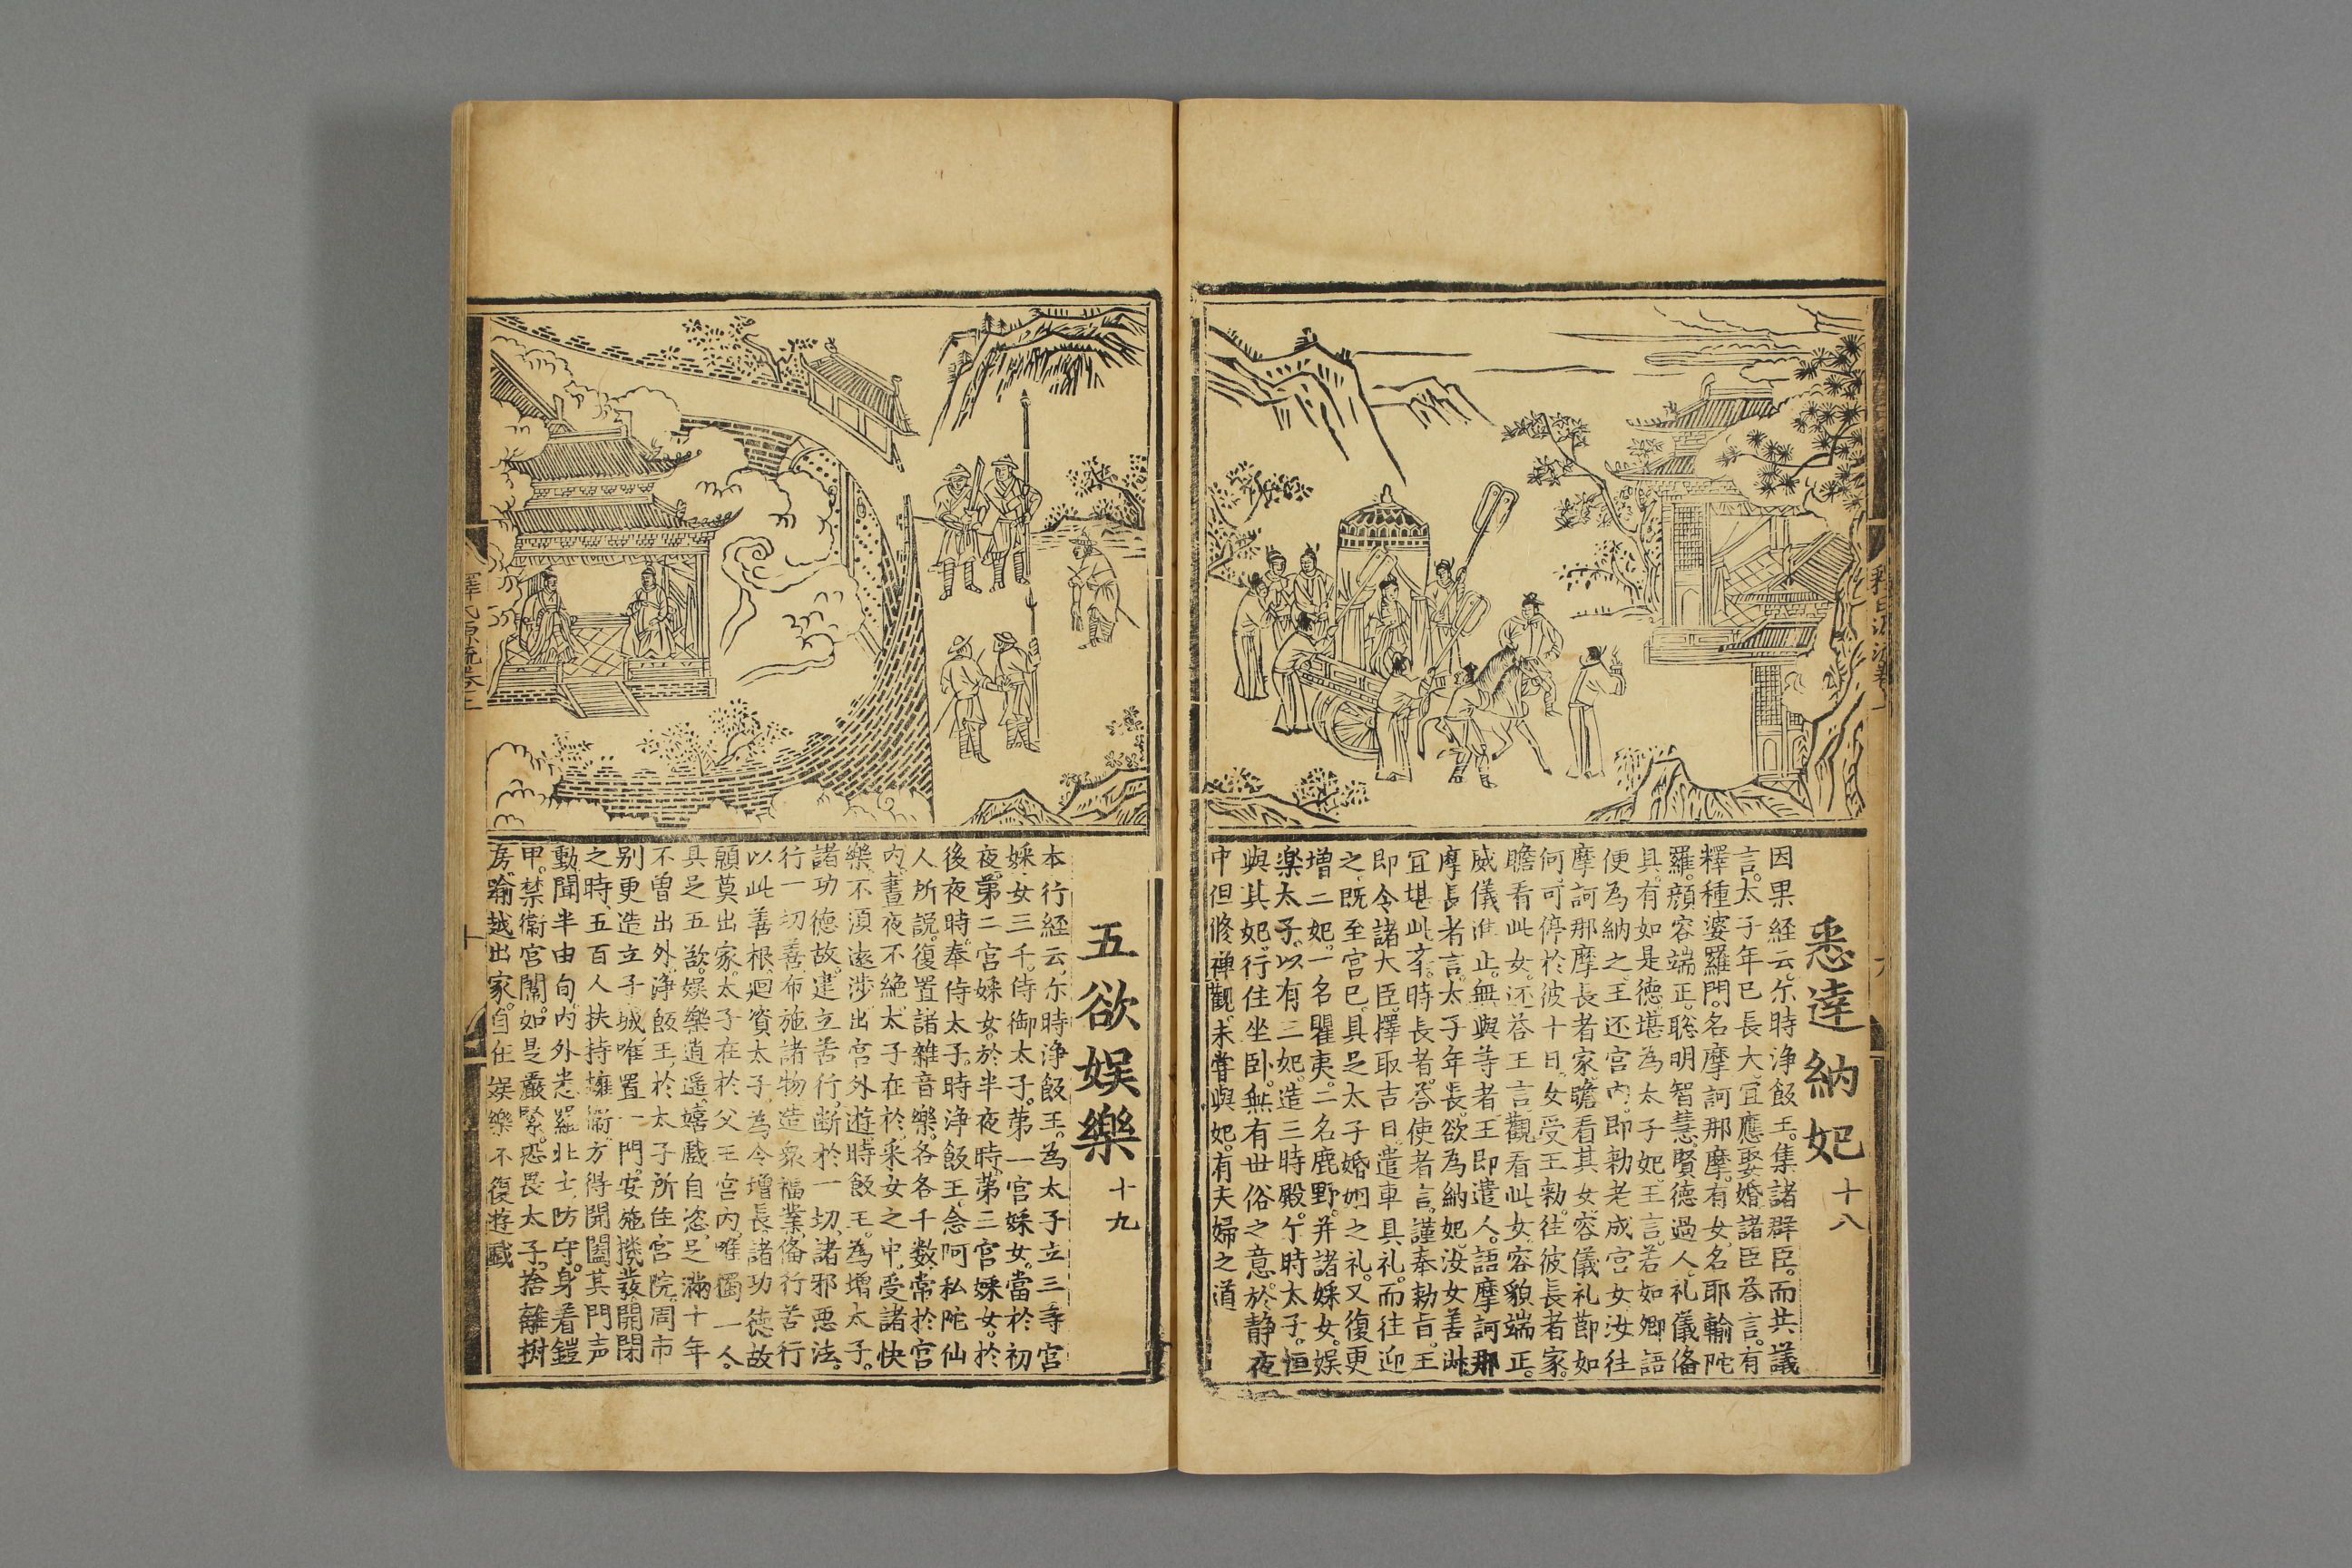 悉達納妃 十八
因果経云。尓時浄飯王。集諸群臣。而共議
言。太子年已長大。宜應娶婚。諸臣荅言。有
釋種婆羅門。名摩訶那摩。有女名耶輸陀
羅。顔容端正。聡明智慧。賢徳過人。礼儀俻
具。有如是徳。堪為太子妃。王言。若如卿語
便為納之。王还宮内。即勑老成宮女。汝往
摩訶那摩長者家。瞻看其女。容儀礼節如
何。可停於彼十日。女受王勑。往彼長者家。
瞻看此女。还荅王言。觀看此女。容貌端正。
威儀進止。無與等者。王即遣人。語摩訶那
摩長者言。太子年長。欲為納妃。汝女善淑
宜堪此亲。時長者。荅使者言。謹奉勑旨。王
即令諸大臣。擇取吉日。遣車具礼。而往迎
之。既至宮已。具足太子婚姻之礼。又復更
増二妃。一名瞿夷。二名鹿野。并諸婇女。娱
楽太子。以有三妃。造三時殿。尓時太子。恒
與其妃。行住坐卧。無有世俗之意。於静夜
中但修禅觀。未甞與妃。有夫婦之道
五欲娱樂 十九
本行経云。尓時浄飯王。為太子立三等宮
婇女三千。侍御太子。第一宮婇女。當於初
夜。第二宮婇女。於半夜時。第三宮婇女。於
後夜時。奉侍太子。時浄飯王。念阿私陀仙
人所説。復置諸雜音樂。各各千数。常於宮
内。晝夜不絶。太子在於婇女之中。受諸快
樂。不須遠渉出宮外遊。時飯王。為増太子。
諸功徳故。建立苦行。断於一切諸邪悪法。
行一切善。布施諸物。造衆福業。俻行苦行
以此善根。廻資太子。為令増長諸功徳故
願莫出家。太子在於父王宮内。唯獨一人。
具足五欲。娱樂逍遥。嬉戯自恣。足満十年
不曽出外。浄飯王。於太子所住宮院。周帀
别更造立子城。唯置一門。安施機發。開閉
之時。五百人扶持擁衛。方得開闔。其門声
動。聞半由旬。内外悉羅壮士。防守。身着鎧
甲。禁衛宮闈。如是嚴緊。恐畏太子。捨離樹
房。踰越出家。自在娱樂不復遊戯